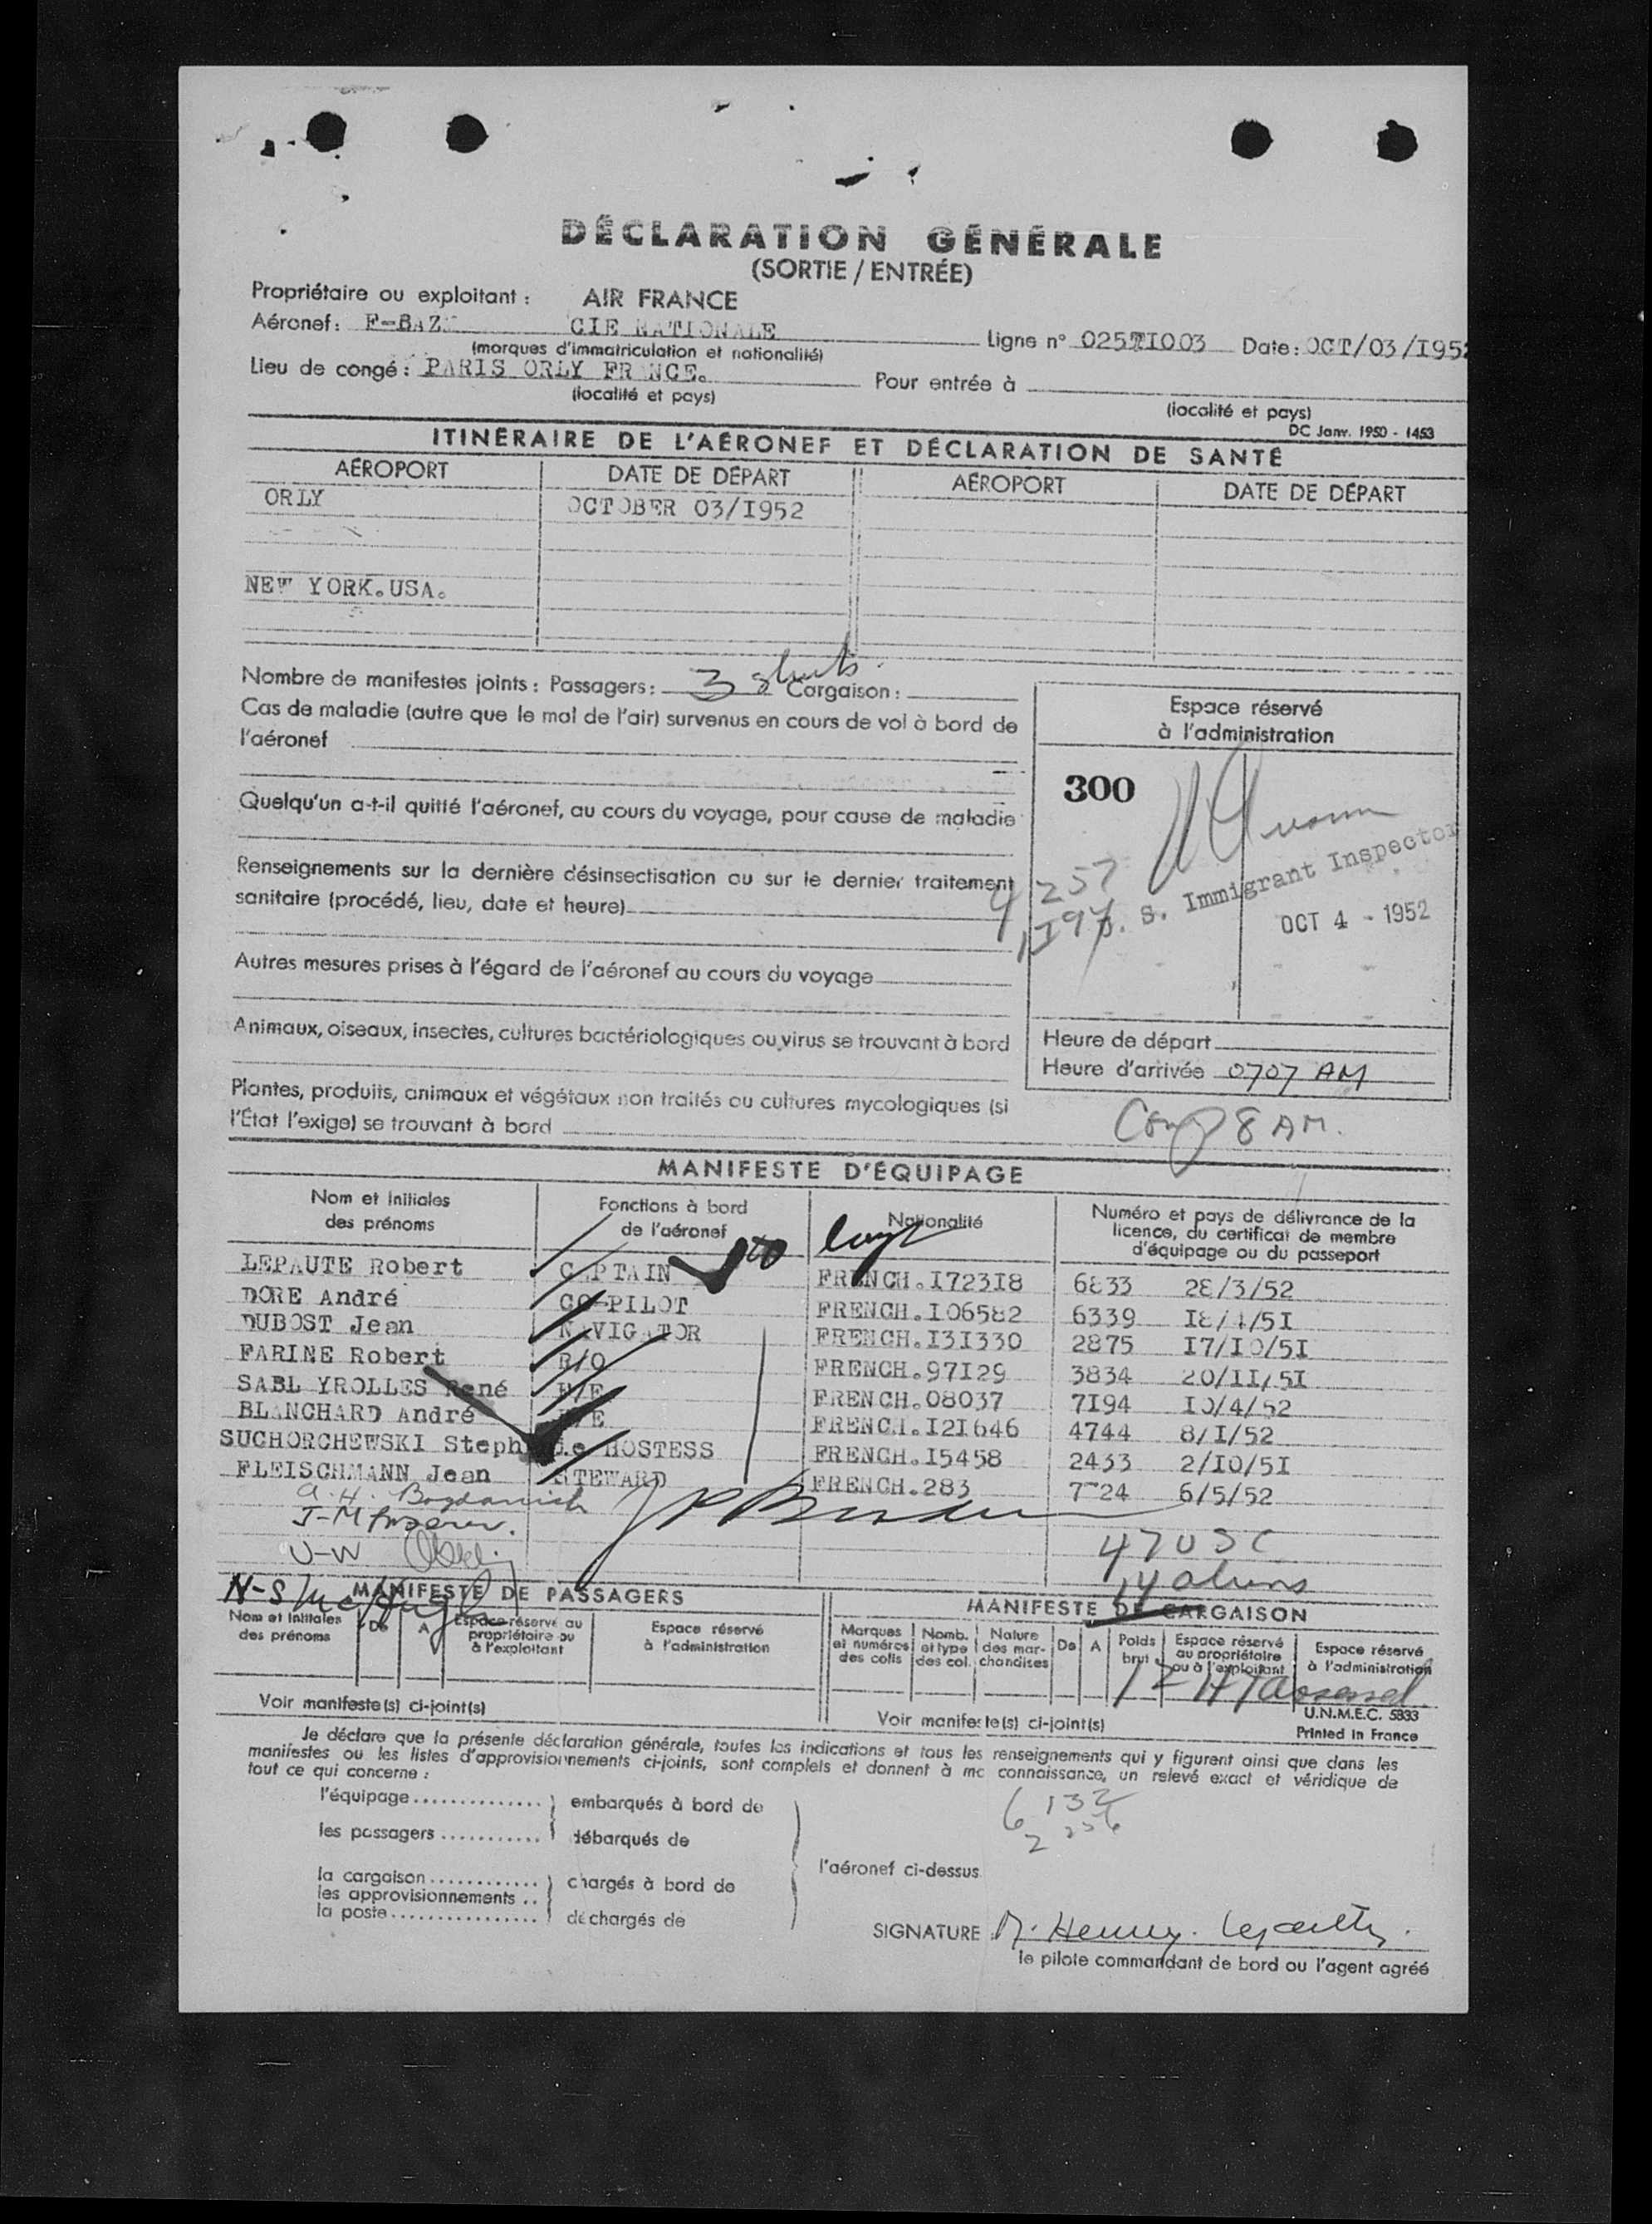 DÉCLARATION GÉNÉRALE
(SORTIE / ENTRÉE)
Propriétaire ou exploitant : AIR FRANCE
Aéronef : F-BAZ CIE NATIONALE Ligne n° 025 1003 Date : OCT/03/195
(marques d'immatriculation et nationalité)
Lieu de congé : PARIS ORLY FR NCE. Pour entrée à
(localité et pays) (localité et pays)
DC Janv. 1950 - 1453
ITINÉRAIRE DE L'AÉRONEF ET DÉCLARATION DE SANTÉ
AÉROPORT DATE DE DÉPART AÉROPORT DATE DE DÉPART
ORLY OCTOBER 03/I952
NEW YORK.USA.
Nombre de manifestes joints : Passagers : 3 sheets Cargaison :
Cas de maladie (autre que le mal de l'air) survenus en cours de vol à bord de
l'aéronef
Quelqu'un a-t-il quitté l'aéronef, au cours du voyage, pour cause de maladie
Renseignements sur la dernière désinsectisation ou sur le dernier traitement
sanitaire (procédé, lieu, date et heure)
Autres mesures prises à l'égard de l'aéronef au cours du voyage
Animaux, oiseaux, insectes, cultures bactériologiques ou virus se trouvant à bord
Plantes, produits, animaux et végétaux non traités ou cultures mycologiques (si
l'État l'exige) se trouvant à bord
Espace réservé
à l'administration
300
4 257
S. Immigrant Inspector
OCT 4 - 1952
Heure de départ
Heure d'arrivée 0707 AM
8 AM.
MANIFESTE D'ÉQUIPAGE
Nom et Initiales des prénoms Fonctions à bord de l'aéronef Nationalité Numéro et pays de délivrance de la licence, du certificat de membre d'équipage ou du passeport
LEPAUTE Robert C PTAIN FRENCH.I72318 6833 28/3/52
DORE André CO-PILOT FRENCH.I06582 6339 I8/ /5I
DUBOST Jean N VIG TOR FRENCH.I3I330 2875 I7/I0/5I
FARINE Robert R/O FRENCH.97I29 3834 20/II/5I
SABL YROLLES René FRENCH.08037 7I94 I0/4/52
BLANCHARD André FRENCH.I21646 4744 8/I/52
SUCHORCHEWSKI Steph ie HOSTESS FRENCH.I5458 2433 2/I0/5I
FLEISCHMANN Jean STEWARD FRENCH.283 7 24 6/5/52
A. H. Bogdanich
47 USC
14 aliens
MANIFESTE DE PASSAGERS
Nom et Initiales des prénoms De A Espace réservé au propriétaire ou à l'exploitant Espace réservé à l'administration
Voir manifeste(s) ci-joint(s)
MANIFESTE DE CARGAISON
Marques et numéros des colis Nomb. et type des col. Nature des marchandises De A Poids brut Espace réservé au propriétaire ou à l'exploitant Espace réservé à l'administration
U.N.M.E.C. 5833
Voir manifeste(s) ci-joint(s) Printed in France
Je déclare que la présente déclaration générale, toutes les indications et tous les renseignements qui y figurent ainsi que dans les
manifestes ou les listes d'approvisionnements ci-joints, sont complets et donnent à ma connaissance, un relevé exact et véridique de
tout ce qui concerne :
l'équipage .............. embarqués à bord de
les passagers ........... débarqués de
l'aéronef ci-dessus
la cargaison ............ chargés à bord de
les approvisionnements ..
la poste ................ déchargés de
6 132
2 256
SIGNATURE
le pilote commandant de bord ou l'agent agréé